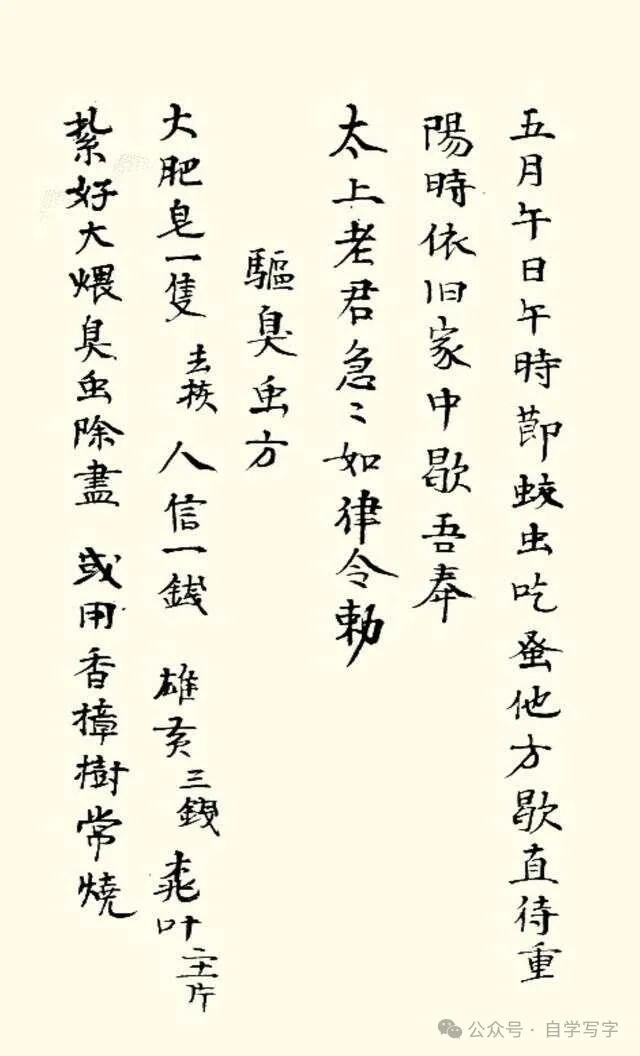 五月午日午時節蚊虫吃蚤他方歇直待重
陽時依旧家中歇吾奉
太上老君急〻如律令勅
驅臭虫方
大肥皂一隻 去核 人信一錢 雄黃 三錢 桃叶 片
紮好大煨臭虫除盡 或用香樟樹常燒
公众号 · 自学写字